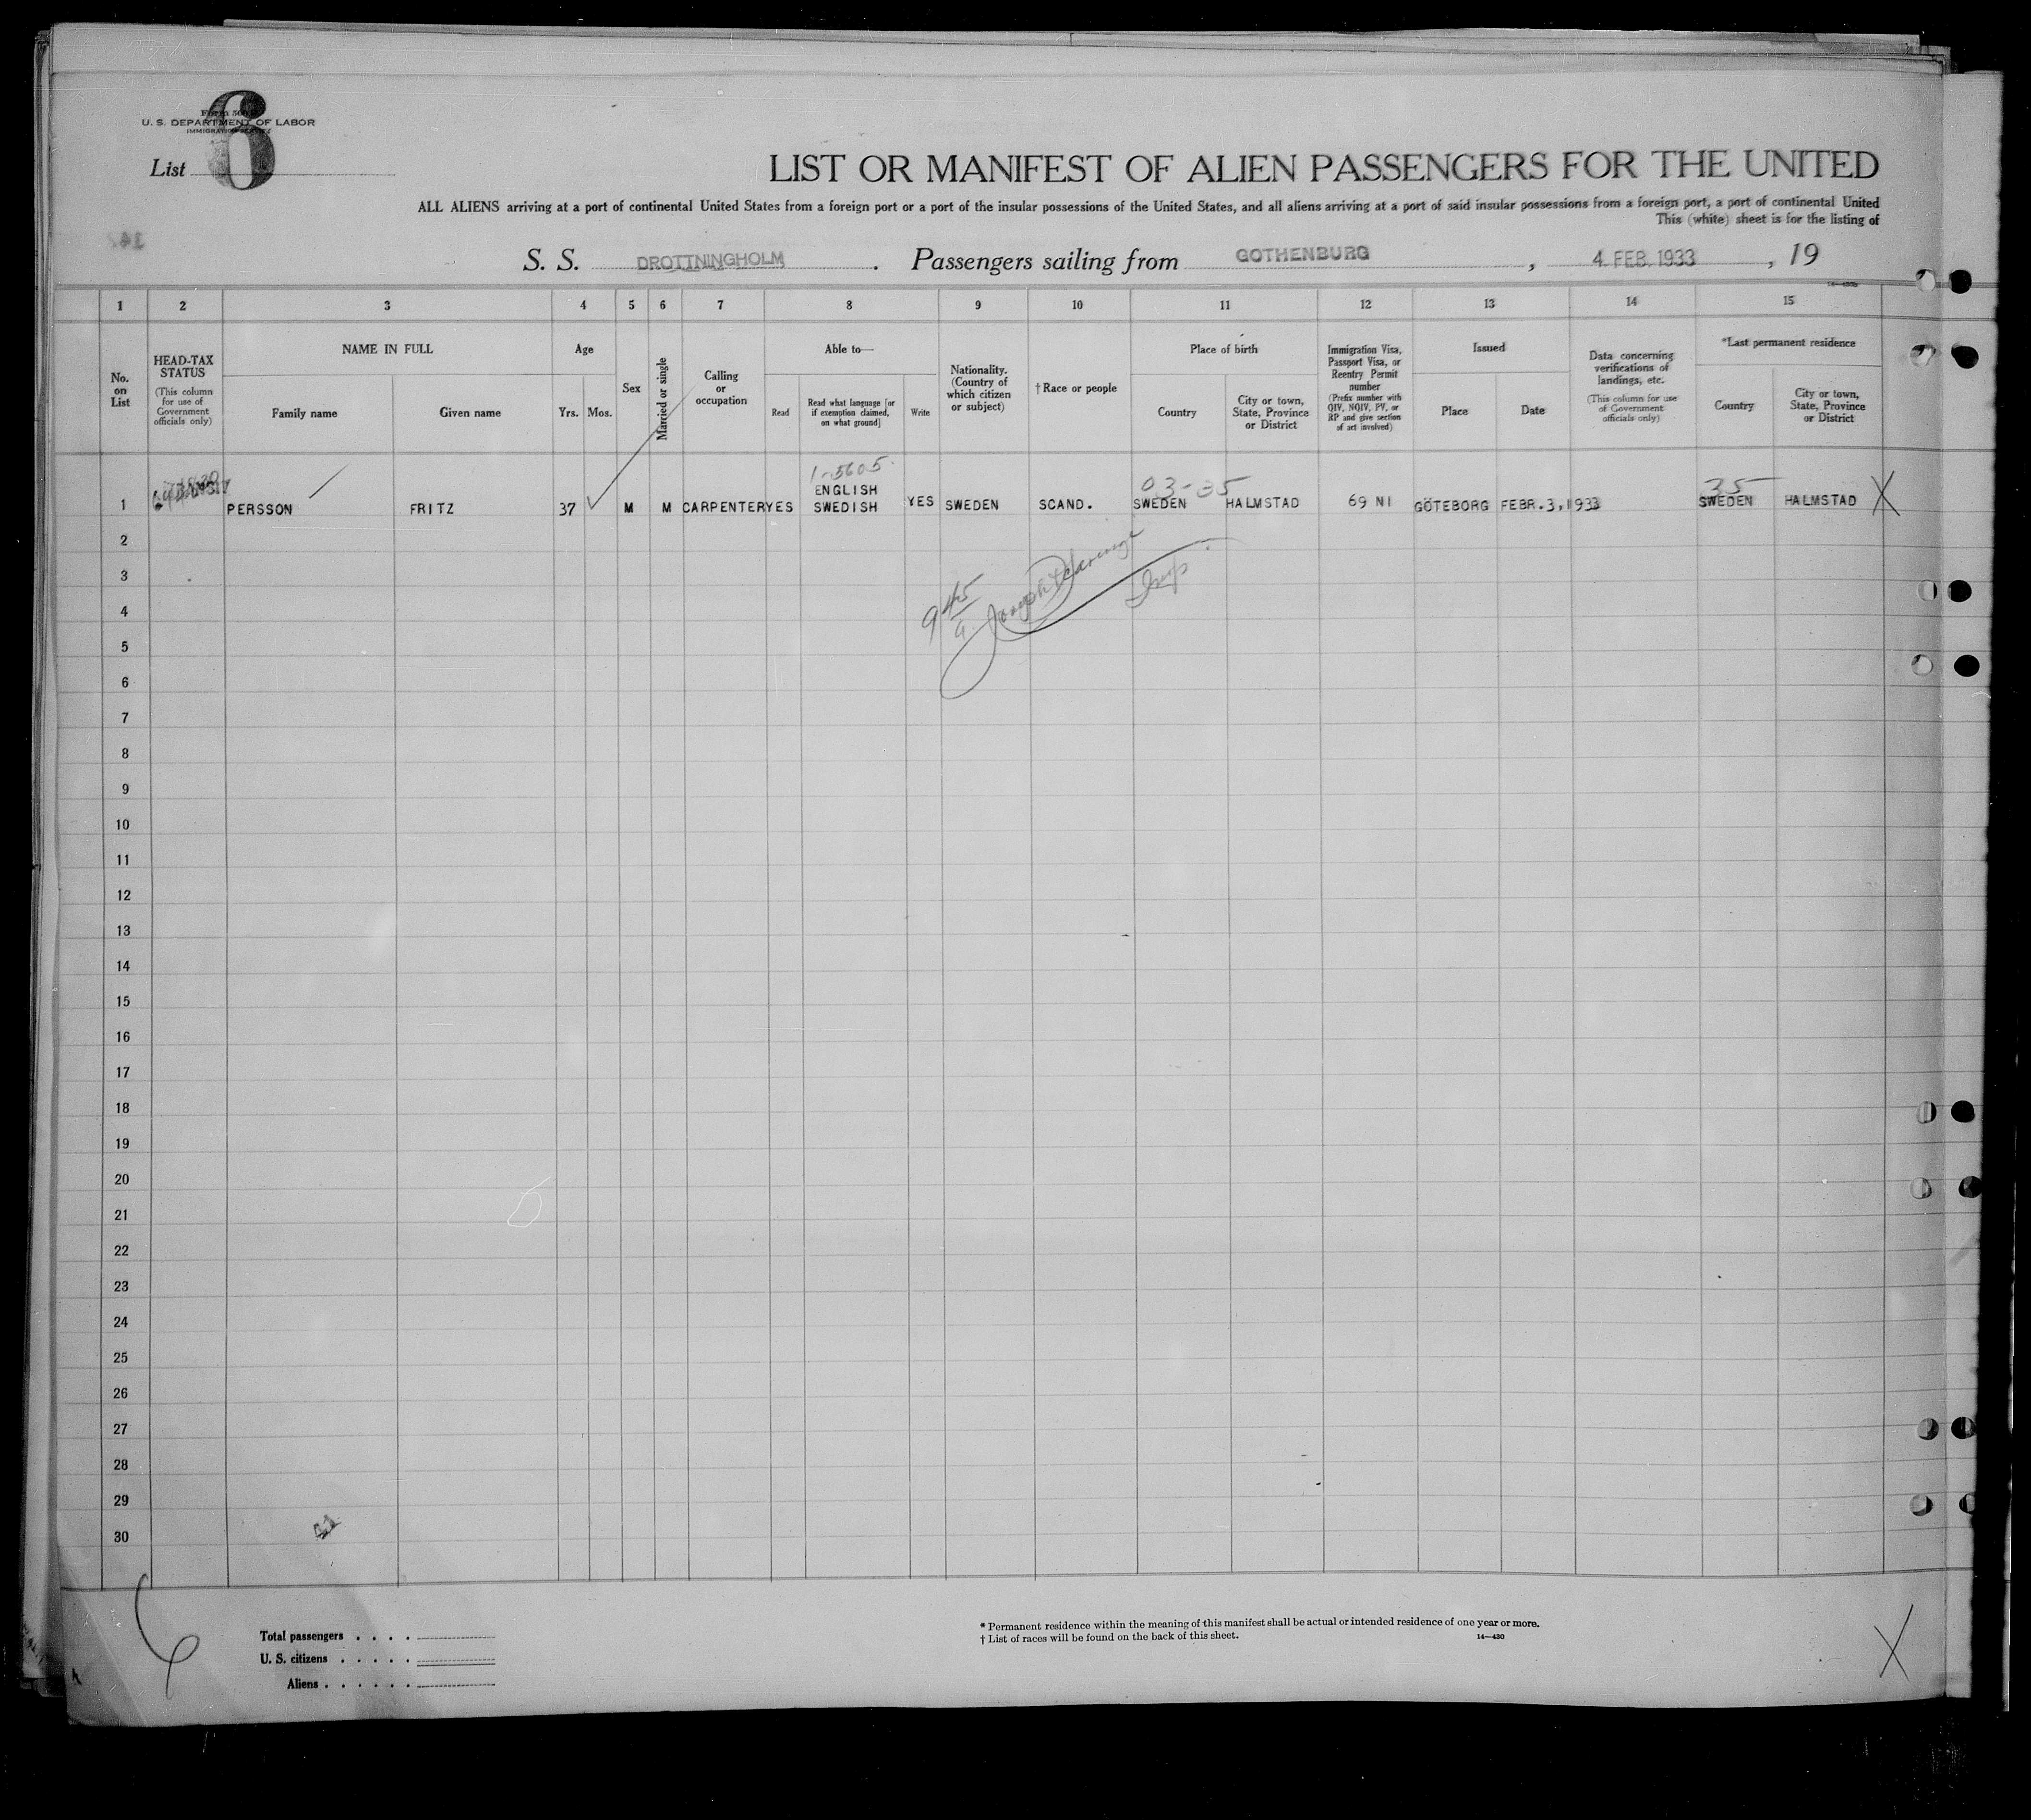 6
U. S. DEPARTMENT OF LABOR
IMMIGRATION SERVICE
List
LIST OR MANIFEST OF ALIEN PASSENGERS FOR THE UNITED
ALL ALIENS arriving at a port of continental United States from a foreign port or a port of the insular possessions of the United States, and all aliens arriving at a port of said insular possessions from a foreign port, a port of continental United
This (white) sheet is for the listing of
S. S. DROTTNINGHOLM . Passengers sailing from GOTHENBURG , 4. FEB. 1933 , 19
1 2 3 4 5 6 7 8 9 10 11 12 13 14 15
No. on List
HEAD-TAX STATUS
(This column for use of Government officials only)
NAME IN FULL
Family name
Given name
Age
Yrs.
Mos.
Sex
Married or single
Calling or occupation
Able to—
Read
Read what language [or if exemption claimed, on what ground]
Write
Nationality. (Country of which citizen or subject)
†Race or people
Place of birth
Country
City or town, State, Province or District
Immigration Visa, Passport Visa, or Reentry Permit number
(Prefix number with QIV, NQIV, PV, or RP and give section of act involved)
Issued
Place
Date
Data concerning verifications of landings, etc.
(This column for use of Government officials only)
*Last permanent residence
Country
City or town, State, Province or District
1-5605 03-35 35
1 PERSSON FRITZ 37 M M CARPENTER YES ENGLISH SWEDISH YES SWEDEN SCAND. SWEDEN HALMSTAD 69 NI GÖTEBORG FEBR.3,1933 SWEDEN HALMSTAD X
2
3
4
5
6
7
8
9
10
11
12
13
14
15
16
17
18
19
20
21
22
23
24
25
26
27
28
29
30
945
Insp
Total passengers . . . .
U. S. citizens . . . . .
Aliens . . . . . .
* Permanent residence within the meaning of this manifest shall be actual or intended residence of one year or more.
† List of races will be found on the back of this sheet.
14—430
X